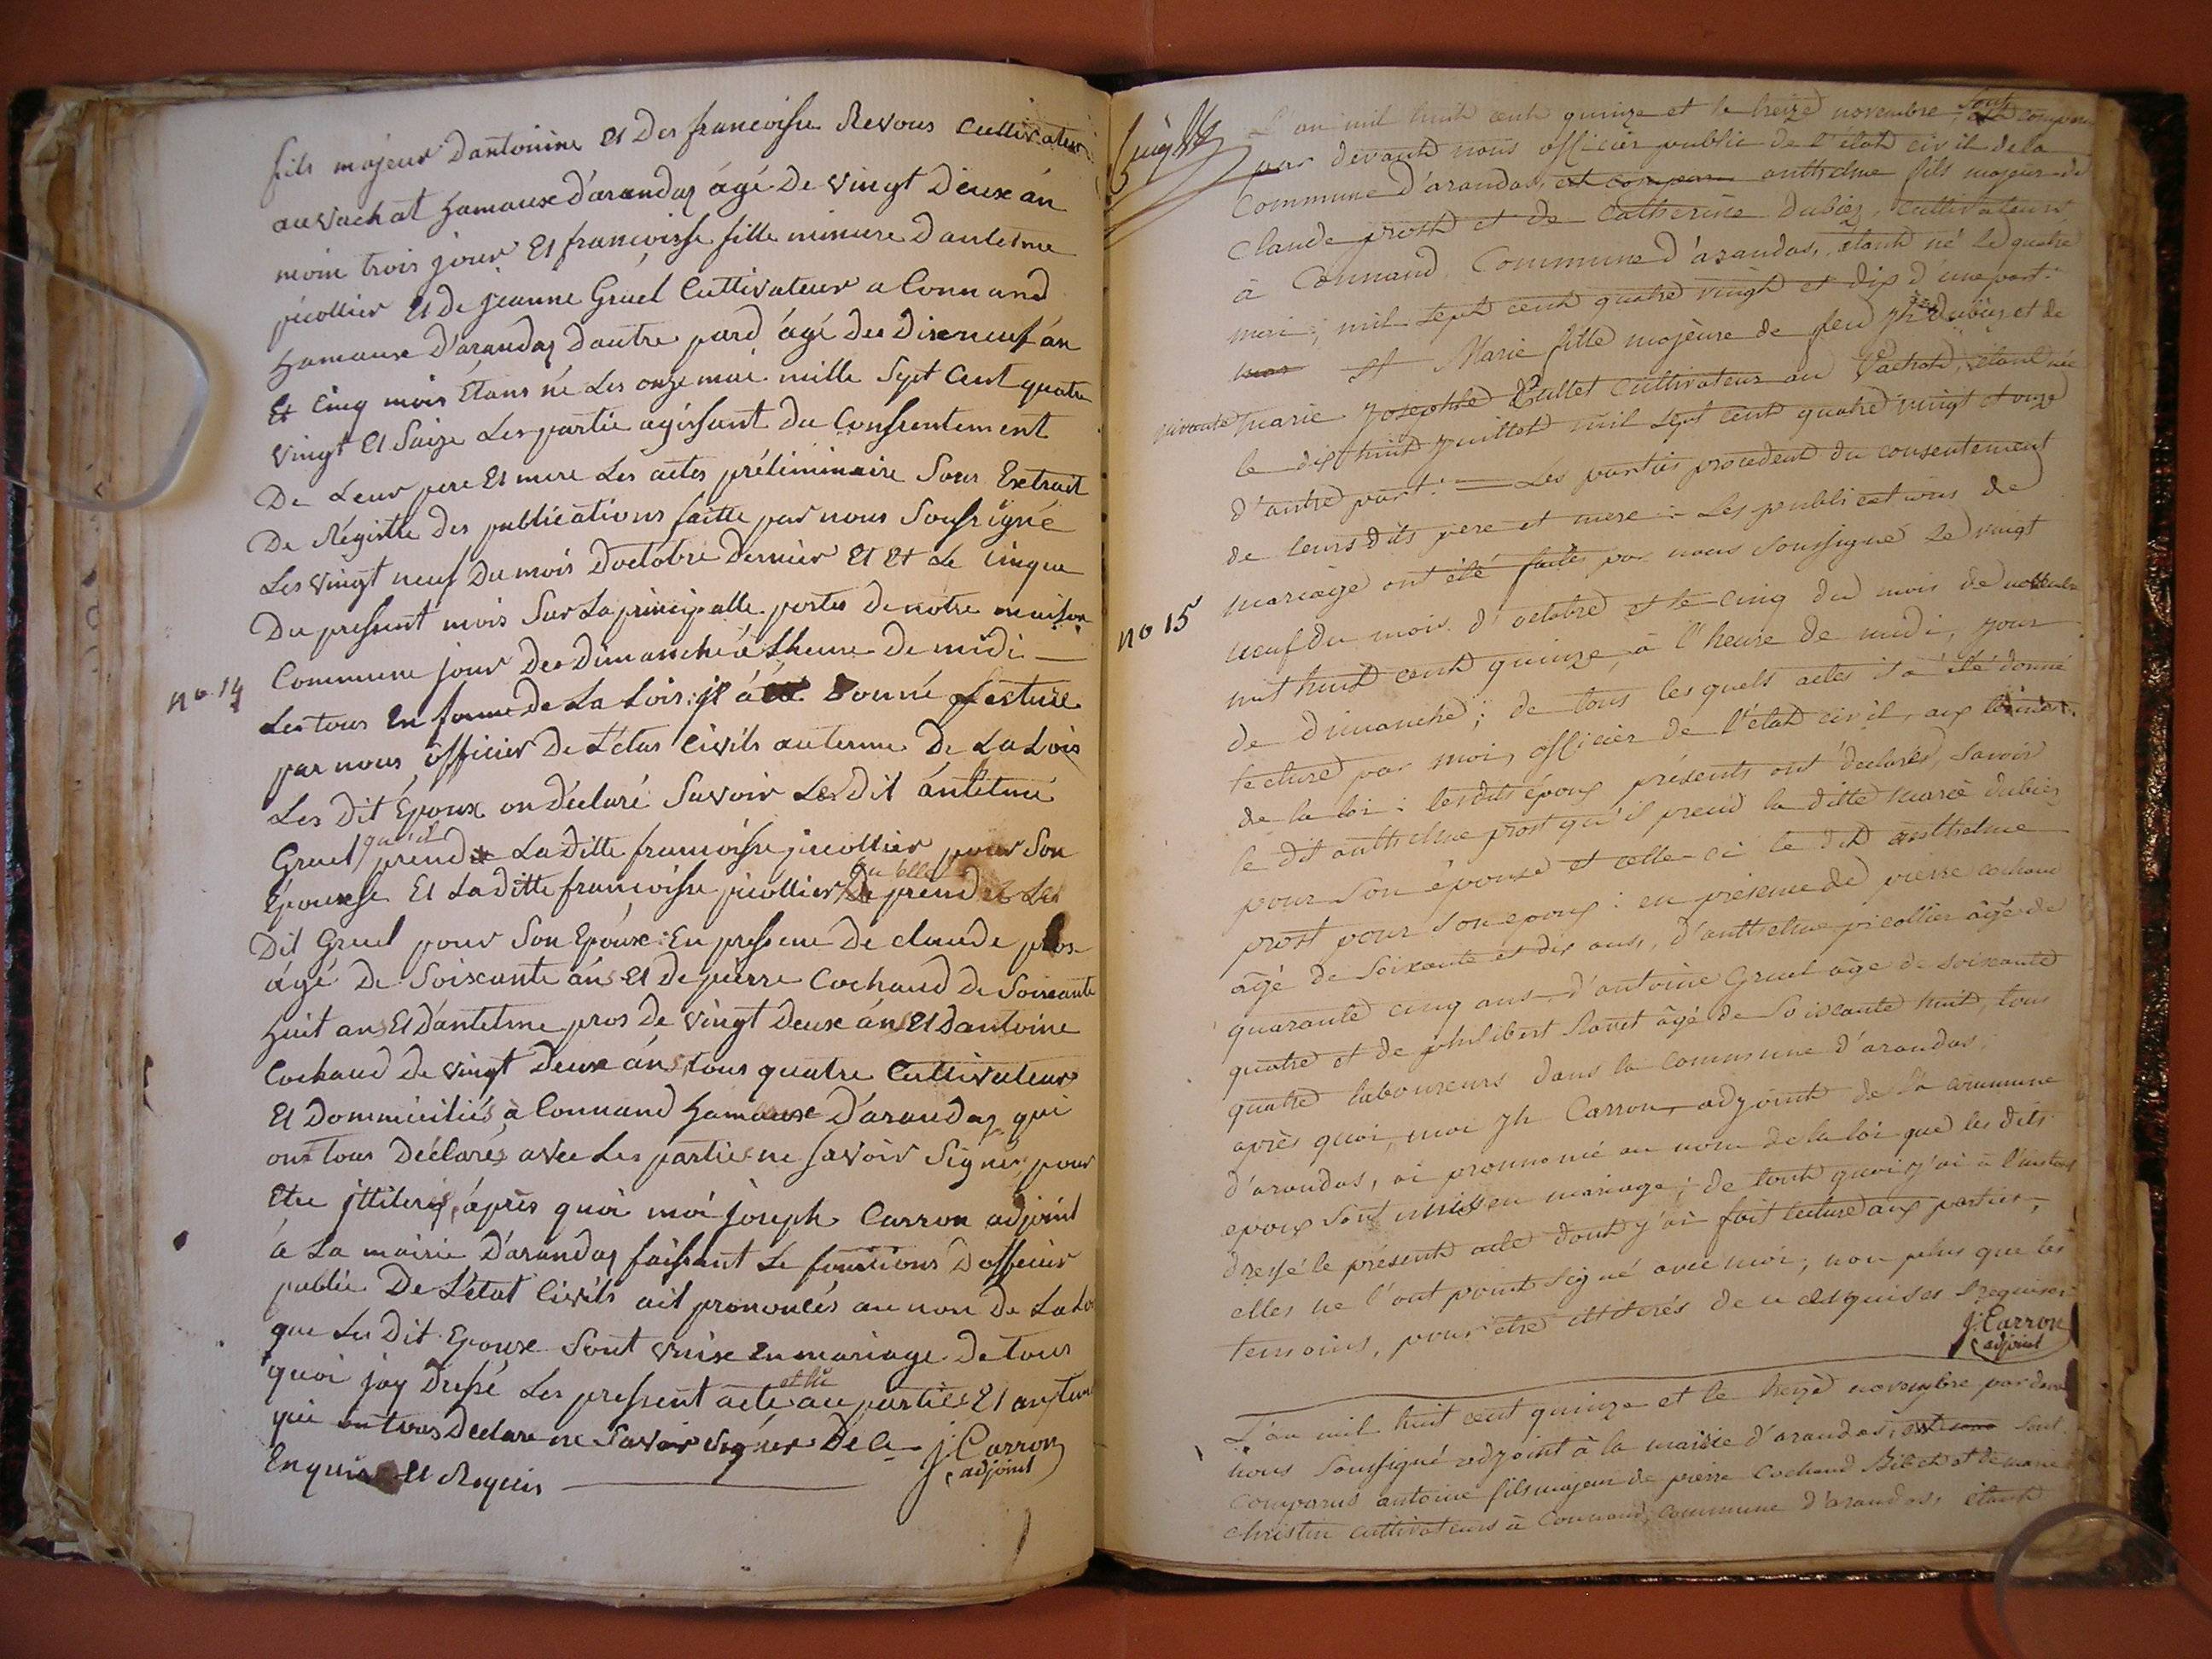 fils majeur Dantoinine Et Des francoisse Revous Cultivateur
au vachat hamaux D'arandas ágé De vingt Deux án
moin trois jour Et francoisse fille minure D'antelme
picollier Et De jeanne Gruel Cultivateur a Connand
hamaux D'arandas Dautre pard ágé des Dixneuf án
Et Cinq mois Etans né Les onze mai mille Sept Cent quatre
vingt Et Saize Les partie agissant du Consentement
De Leur pere Et mere Les actes préliminaire Sons Extrait
De Régistte des publications faitte par nous Soussigné
Les vingt neuf Du mois Doctobre Dernier Et Et Le Cinque
Du pressent mois Sur La principalle portes De notre maison
Commune jour Des Dimanche á Lheure De midi —
no. 14
Les tous En forme De La Lois: jl á été Donné Lecture
par nous officier De L'Etas Civils au terme De La Lois
Les Dit Époux on Déclaré Savoir Les dit ántelme
Gruel qu'il prend La Ditte francoisse picollier pour Son
Epouxse Et La ditte francoisse picollier qu'elle prend Le
Dit Gruel pour Son Epoux: En pressence De claude pros
ágé De Soixante áns Et De pierre Cochaud De Soixante
Huit ans Et D'antelme pros De vingt Deux án Et Dantoine
Cochaud De vingt Deux áns tous quatre Cultivateur
Et Dommiciliés à Connand hamaux D'arandas qui
ons tous Déclarés avec Les parties ne savoir Signer pour
Etre jttiterés, áprès quoi moi joseph Carron adjoint
á La mairie D'arandas faissant Le fonctions D'officier
public De L'état Civils ait prononcés au non De La Loi
que Les Dit Epoux Sont unix En mariage De tous
quoi jay Dressé Les pressent acte et lu au parties Et au tem
qui on tous Déclare ne Savoir Signer De Ce
Enquis Et Requis
j. Carron
adjoint
L'an mil huit cent quinze et le treize novembre, sont comparu
par devant nous officier public de l'état civil de la
Commune d'arandas, est compar anthelme fils majeur de
Claude prost et de Catherine Dubiez, cultivateurs
à Connand, Commune d'arandas, étant né le quatre
mai; mil sept cent quatre vingt et dix d'une part:
Et Marie fille majeure de feu jh Dubiez et de
vivante marie josephte Cultivateur au Vachat, étant née
le dix huit juillet mil sept cent quatre vingt et onze
d'autre part: — Les parties procedent du consentement
de leurs dits pere et mere: Les publications de
mariage ont été faites par nous soussigné le vingt
no 15
neuf du mois d'octobre et le cinq du mois de novembre
mil huit cent quinze, à l'heure de midi, jour
de dimanche; de tous les quels actes il a été donné
lecture par moi, officier de l'état civil, aux termes
de la loi: lesdits époux présents ont déclarés, savoir
le dit anthelme prost qu'il prend la ditte marie dubiez
pour son épouse et celle-ci le dit anthelme
prost pour son epoux: en présence de pierre cochaud
âgé de soixante et dix ans, d'anthelme picollier âgé de
quarante cinq ans, d'antoine Gruel âge de soixante
quatre et de philibert âgé de soixante huit, tous
quatre laboureurs dans la commune d'arandas.
après quoi, moi jh Carron, adjoint de la commune
d'arandas, ai prononcé au nom de la loi que les dits
epoux sont unis en mariage; de tout quoi j'ai à l'instant
dressé le présent acte dont j'ai fait lecture aux parties,
elles ne l'ont point signé avec moi, non plus que les
temoins, pour être illiterés de ce enquises & requises
j. Carron
adjoint
L'an mil huit cent quinze et le treize novembre par devant
nous soussigné adjoint à la mairie d'arandas, sont
comparus antoine fils majeur de pierre Cochaud et de marie
christin cultivateurs à Connand, commune d'arandas, étant